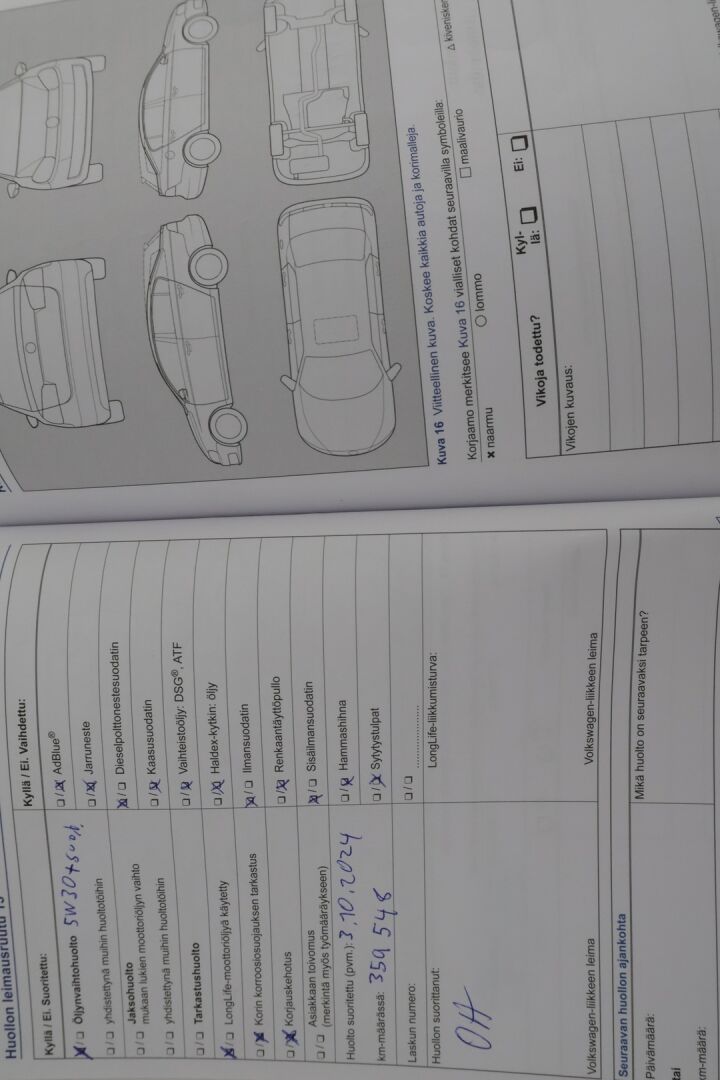 Huollon leimausruutu
Kyllä / Ei. Suoritettu:
☒/☐ Öljynvaihtohuolto 5W30+suod.
☐/☐ yhdistettynä muihin huoltotöihin
Jaksohuolto
☐/☐ mukaan lukien moottoriöljyn vaihto
☐/☐ yhdistettynä muihin huoltotöihin
☐/☐ Tarkastushuolto
☒/☐ LongLife-moottoriöljyä käytetty
☐/☒ Korin korroosiosuojauksen tarkastus
☐/☒ Korjauskehotus
Asiakkaan toivomus
☐/☐ (merkintä myös työmääräykseen)
Huolto suoritettu (pvm.): 3.10.2024
km-määrässä: 359 548
Laskun numero:
Huollon suorittanut:
OH
Volkswagen-liikkeen leima
Kyllä / Ei. Vaihdettu:
☐/☒ AdBlue®
☐/☒ Jarruneste
☒/☐ Dieselpolttonestesuodatin
☐/☒ Kaasusuodatin
☐/☒ Vaihteistoöljy: DSG®, ATF
☐/☒ Haldex-kytkin: öljy
☒/☐ Ilmansuodatin
☐/☒ Renkaantäyttöpullo
☒/☐ Sisäilmansuodatin
☐/☒ Hammashihna
☐/☒ Sytytystulpat
☐/☐ ....................
LongLife-liikkumisturva:
Volkswagen-liikkeen leima
Seuraavan huollon ajankohta
Päivämäärä:
tai
km-määrä:
Mikä huolto on seuraavaksi tarpeen?
Kuva 16 Viitteellinen kuva. Koskee kaikkia autoja ja korimalleja.
Korjaamo merkitsee Kuva 16 vialliset kohdat seuraavilla symboleilla:
✖ naarmu ○ lommo □ maalivaurio △
Vikoja todettu? Kyl-
lä: ☐ Ei: ☐
Vikojen kuvaus: